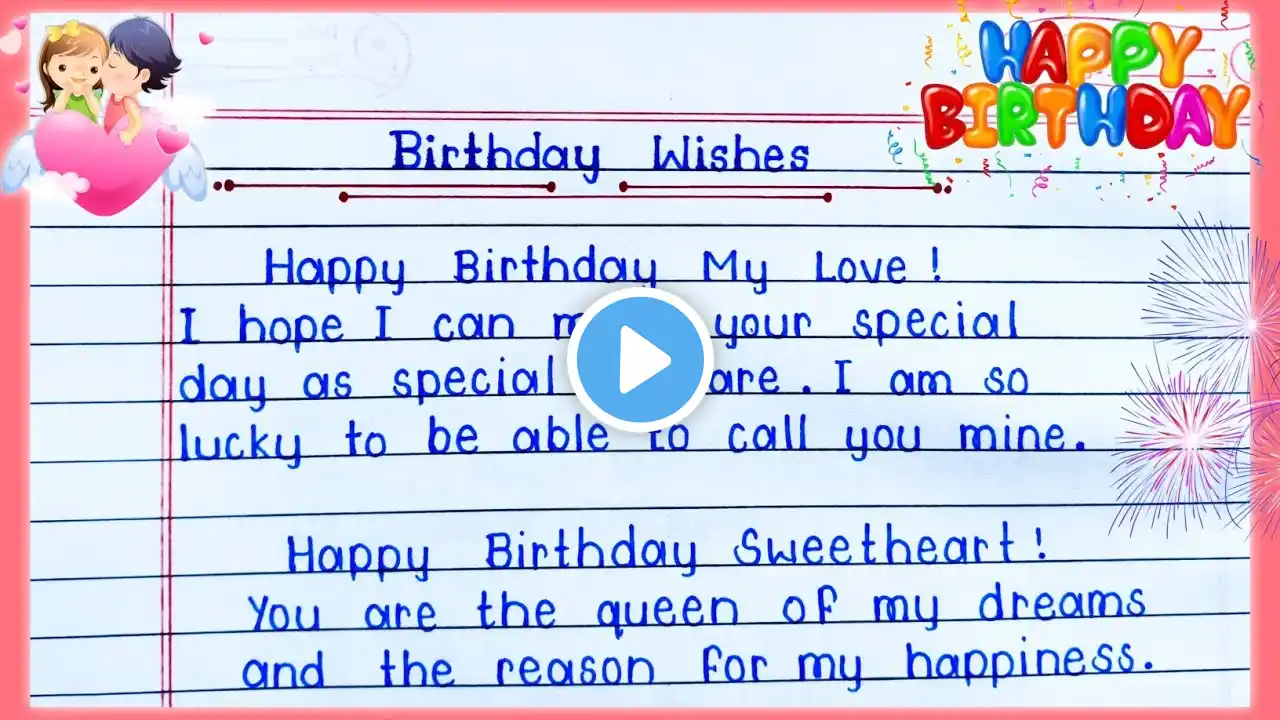 HAPPY
BIRTHDAY
Birthday Wishes
Happy Birthday My Love !
I hope I can your special
day as special are . I am so
lucky to be able to call you mine.
Happy Birthday Sweetheart !
You are the queen of my dreams
and the reason for my happiness.